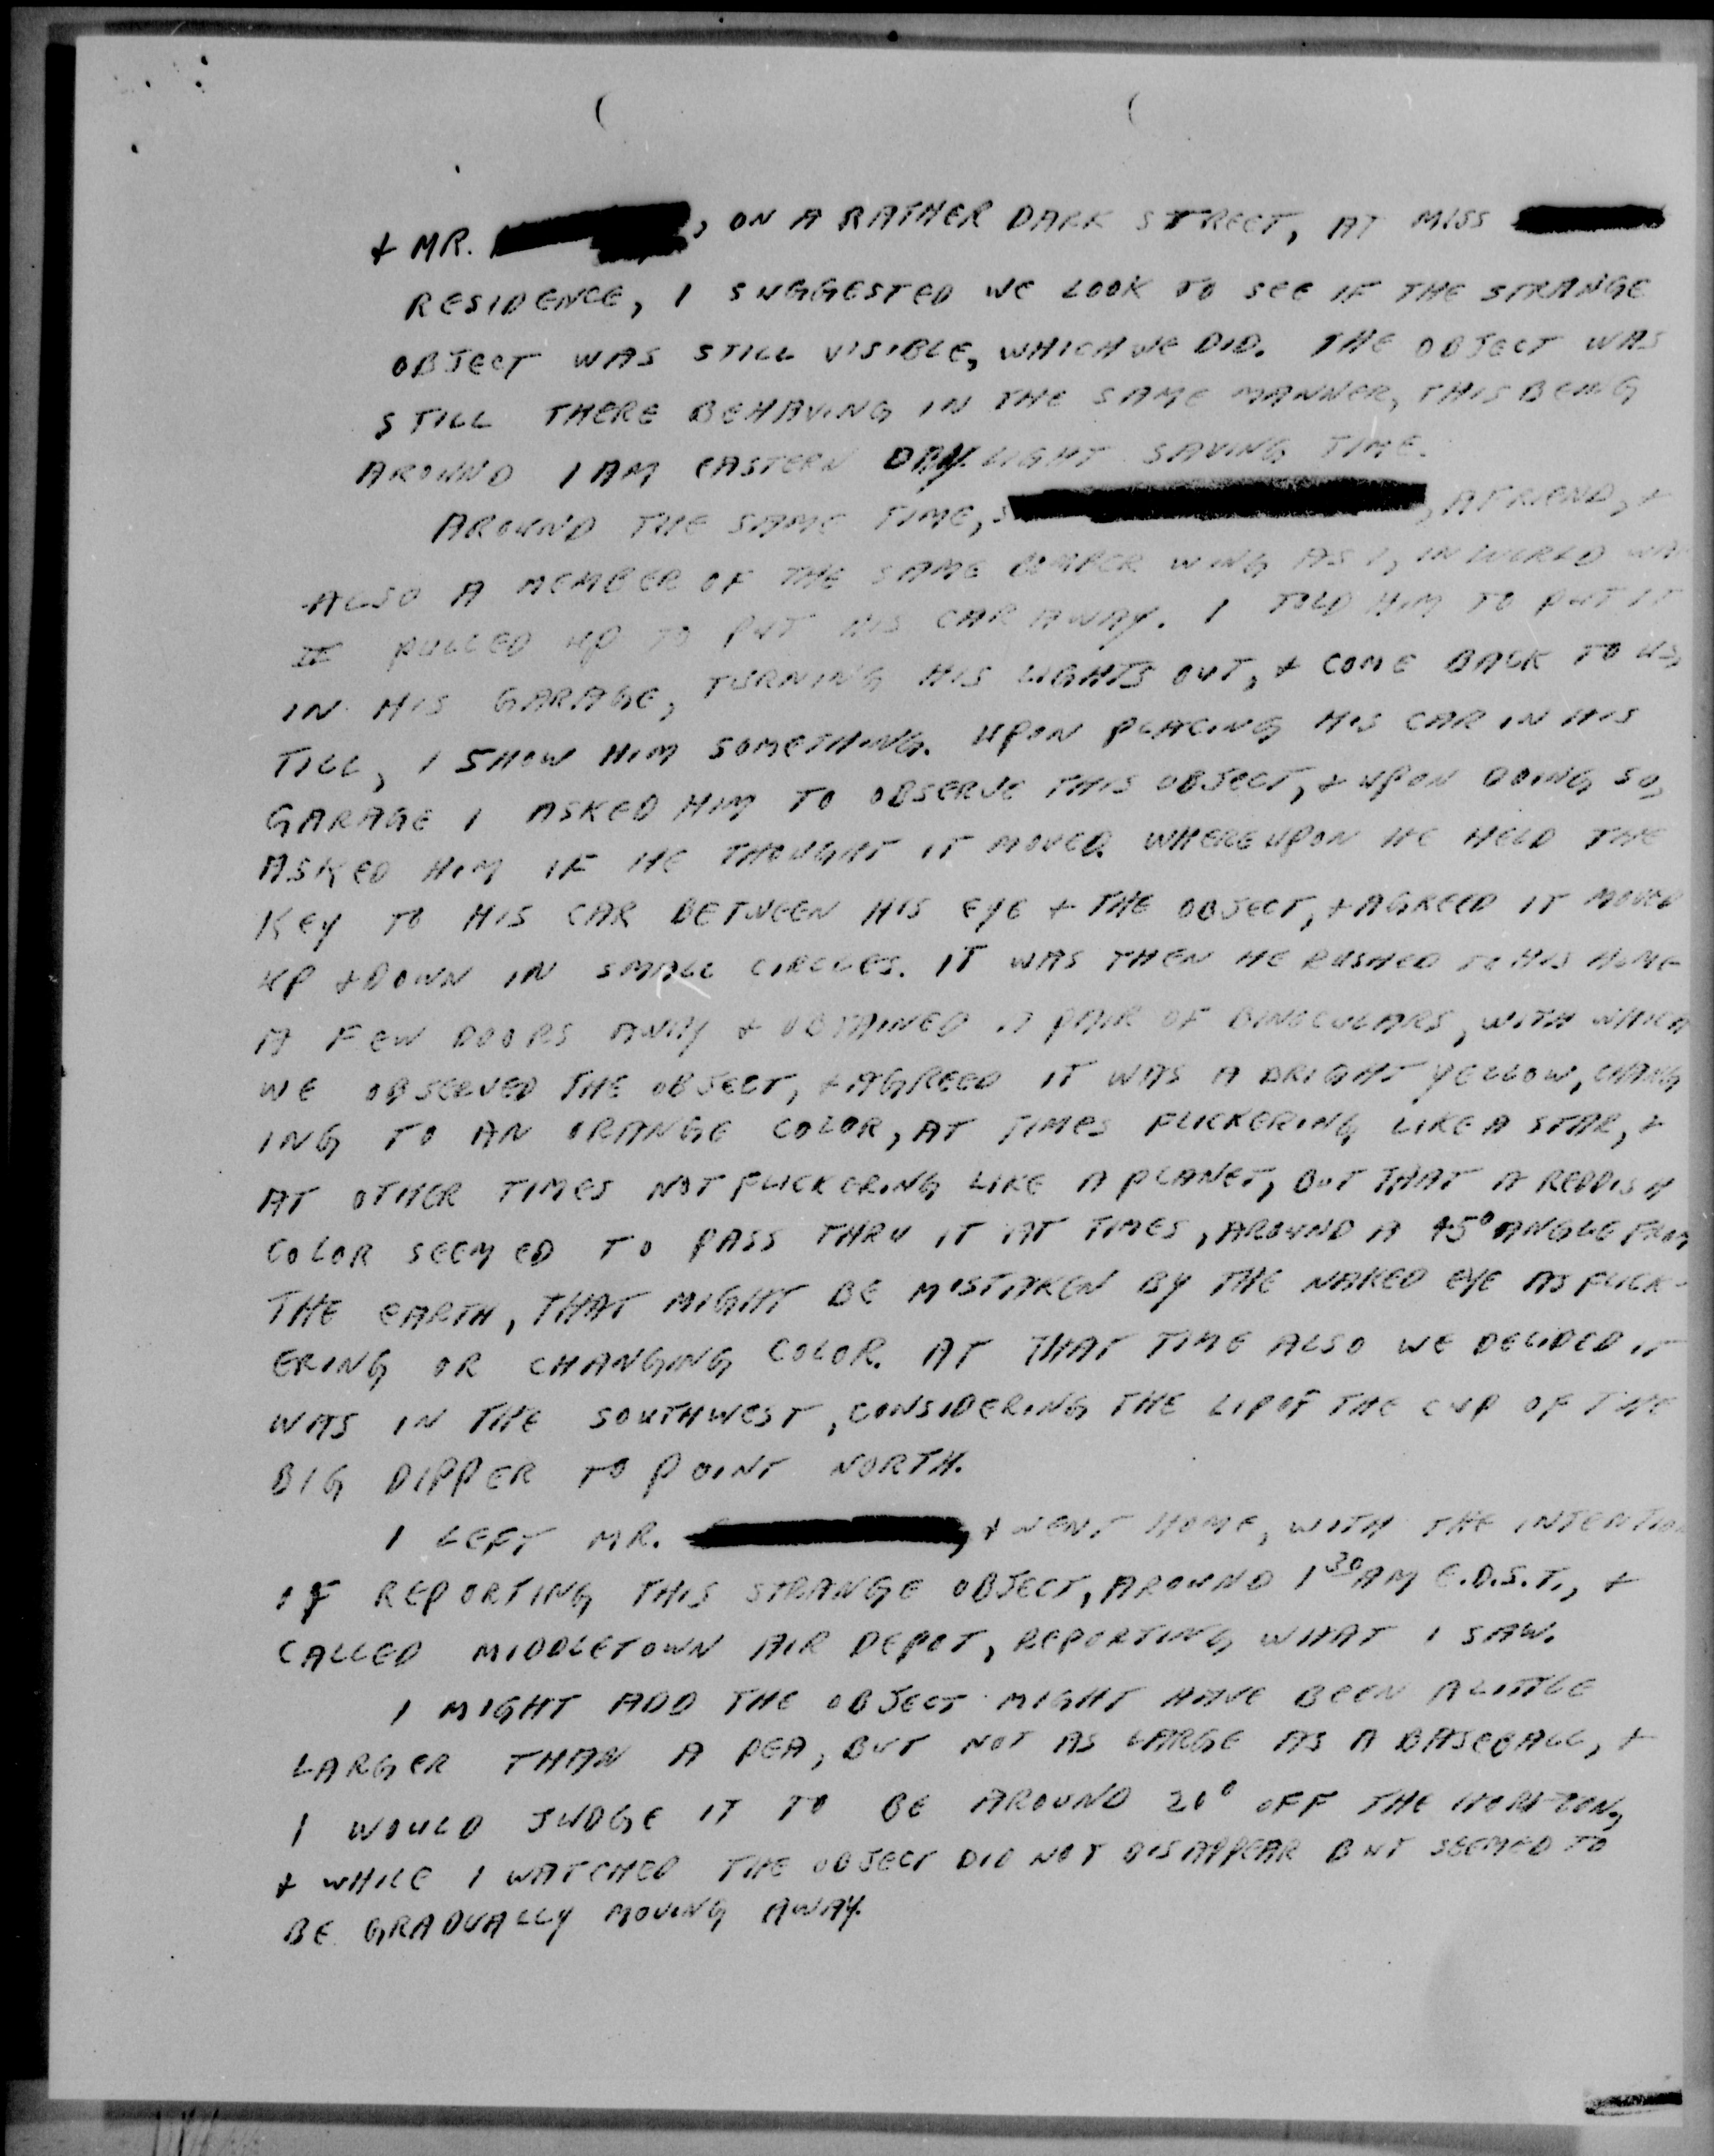 + MR. , ON A RATHER DARK STREET, AT MISS
RESIDENCE, I SUGGESTED WE LOOK TO SEE IF THE STRANGE
OBJECT WAS STILL VISIBLE, WHICH WE DID. THE OBJECT WAS
STILL THERE BEHAVING IN THE SAME MANNER, THIS BEING
AROUND 1 AM EASTERN DAYLIGHT SAVING TIME.
AROUND THE SAME TIME, , A FRIEND, +
ALSO A MEMBER OF THE SAME BOMBER WING AS I, IN WORLD WAR
II PULLED UP TO PUT HIS CAR AWAY. I TOLD HIM TO PUT IT
IN HIS GARAGE, TURNING HIS LIGHTS OUT, + COME BACK TO US,
TILL, I SHOW HIM SOMETHING. UPON PLACING HIS CAR IN HIS
GARAGE I ASKED HIM TO OBSERVE THIS OBJECT, + UPON DOING SO,
ASKED HIM IF HE THOUGHT IT MOVED. WHEREUPON HE HELD THE
KEY TO HIS CAR BETWEEN HIS EYE + THE OBJECT, + AGREED IT MOVED
UP + DOWN IN SMALL CIRCLES. IT WAS THEN HE RUSHED TO HIS HOME
A FEW DOORS AWAY + OBTAINED A PAIR OF BINOCULARS, WITH WHICH
WE OBSERVED THE OBJECT, + AGREED IT WAS A BRIGHT YELLOW, CHANG
ING TO AN ORANGE COLOR, AT TIMES FLICKERING LIKE A STAR, +
AT OTHER TIMES NOT FLICKERING LIKE A PLANET, BUT THAT A REDDISH
COLOR SEEMED TO PASS THRU IT AT TIMES, AROUND A 45° ANGLE FROM
THE EARTH, THAT MIGHT BE MISTAKEN BY THE NAKED EYE AS FLICK-
ERING OR CHANGING COLOR. AT THAT TIME ALSO WE DECIDED IT
WAS IN THE SOUTHWEST, CONSIDERING THE LIP OF THE CUP OF THE
BIG DIPPER TO POINT NORTH.
I LEFT MR. , + WENT HOME, WITH THE INTENTION
OF REPORTING THIS STRANGE OBJECT, AROUND 1 30 AM E.D.S.T., +
CALLED MIDDLETOWN AIR DEPOT, REPORTING WHAT I SAW.
I MIGHT ADD THE OBJECT MIGHT HAVE BEEN A LITTLE
LARGER THAN A PEA, BUT NOT AS LARGE AS A BASEBALL, +
I WOULD JUDGE IT TO BE AROUND 20° OFF THE HORIZON,
+ WHILE I WATCHED THE OBJECT DID NOT DISAPPEAR BUT SEEMED TO
BE GRADUALLY MOVING AWAY.